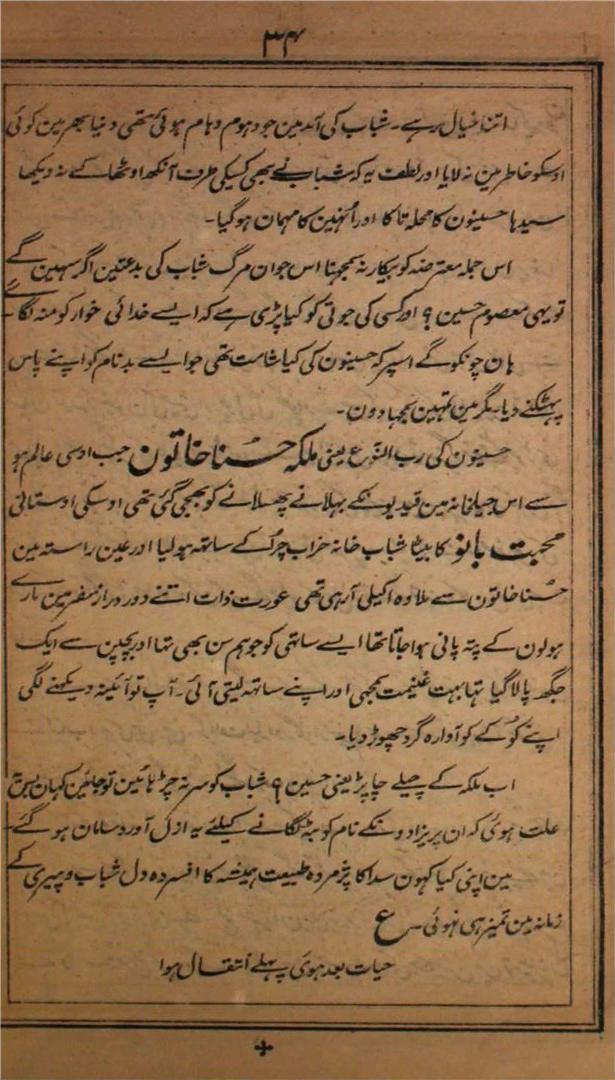 ۳۴
اتنا خیال رہے۔ شباب کی آمد مین جو دہوم دہام ہوئی تھی دنیا بھر مین کوئی
اوسکو خاطر مین نہ لایا اور لطف یہ کہ شباب نے بھی کسیکی طرف آنکھ اوٹھا کے نہ دیکھا
سیدہا حسینون کا محلہ تاکا اور اُنہین کا مہمان ہو گیا۔
اس جملہ معترضہ کو بیکار نہ سمجہنا اس جوان مرگ شباب کی بدعتین اگر سہین گے
تو یہی معصوم حسین ؟ اور کسی کی جوتی کو کیا پڑی ہے کہ ایسے خدائی خوار کو منہ لگائے۔
ہان چونکو گے اسپر کہ حسینون کی کیا شامت تھی جو ایسے بدنام کو اپنے پاس
پہٹکنے دیا۔ مگر مین تمہین سمجہا دون۔
حسینون کی رب النوع یعنی ملکہ حُسنا خاتون جب اوسی عالم ہو
سے اس جیلخانہ مین قیدیونکے بہلانے پھسلانے کو بھیجی گئی تھی اوسکی اوستانی
محبت بانو کا بیٹا شباب خانہ خراب چُراکے ساتھ ہو لیا اور عین راستہ مین
حُسنا خاتون سے ملا وہ اکیلی آ رہی تھی عورت ذات اتنے دور دراز سفر مین مارے
ہولون کے پتہ پانی ہوا جاتا تھا ایسے ساتھی کو جو ہم سن بھی تہا اور بچپن سے ایک
جگھہ پالا گیا تہا بہت غنیمت سمجہی اور اپنے ساتھ لیتی آئی۔ آپ تو آئینہ دیکھنے لگی
اپنے کوکے کو آوارہ گرد چھوڑ دیا۔
اب ملکہ کے چیلے چاپڑ یعنی حسین ؟ شباب کو سر نہ چڑہائین تو جائین کہان بس یہی
علت ہوئی کہ ان پریزادونکے نام کو بٹہ لگانے کیلئے یہ از کل آورد سامان ہو گئے۔
مین اپنی کیا کہون سدا کا پژمردہ طبیعت ہمیشہ کا افسردہ دل شباب و پیری کے
زمانہ مین تمیز ہی نہوئی۔ ع
حیات بعد ہوئی پہلے انتقال ہوا